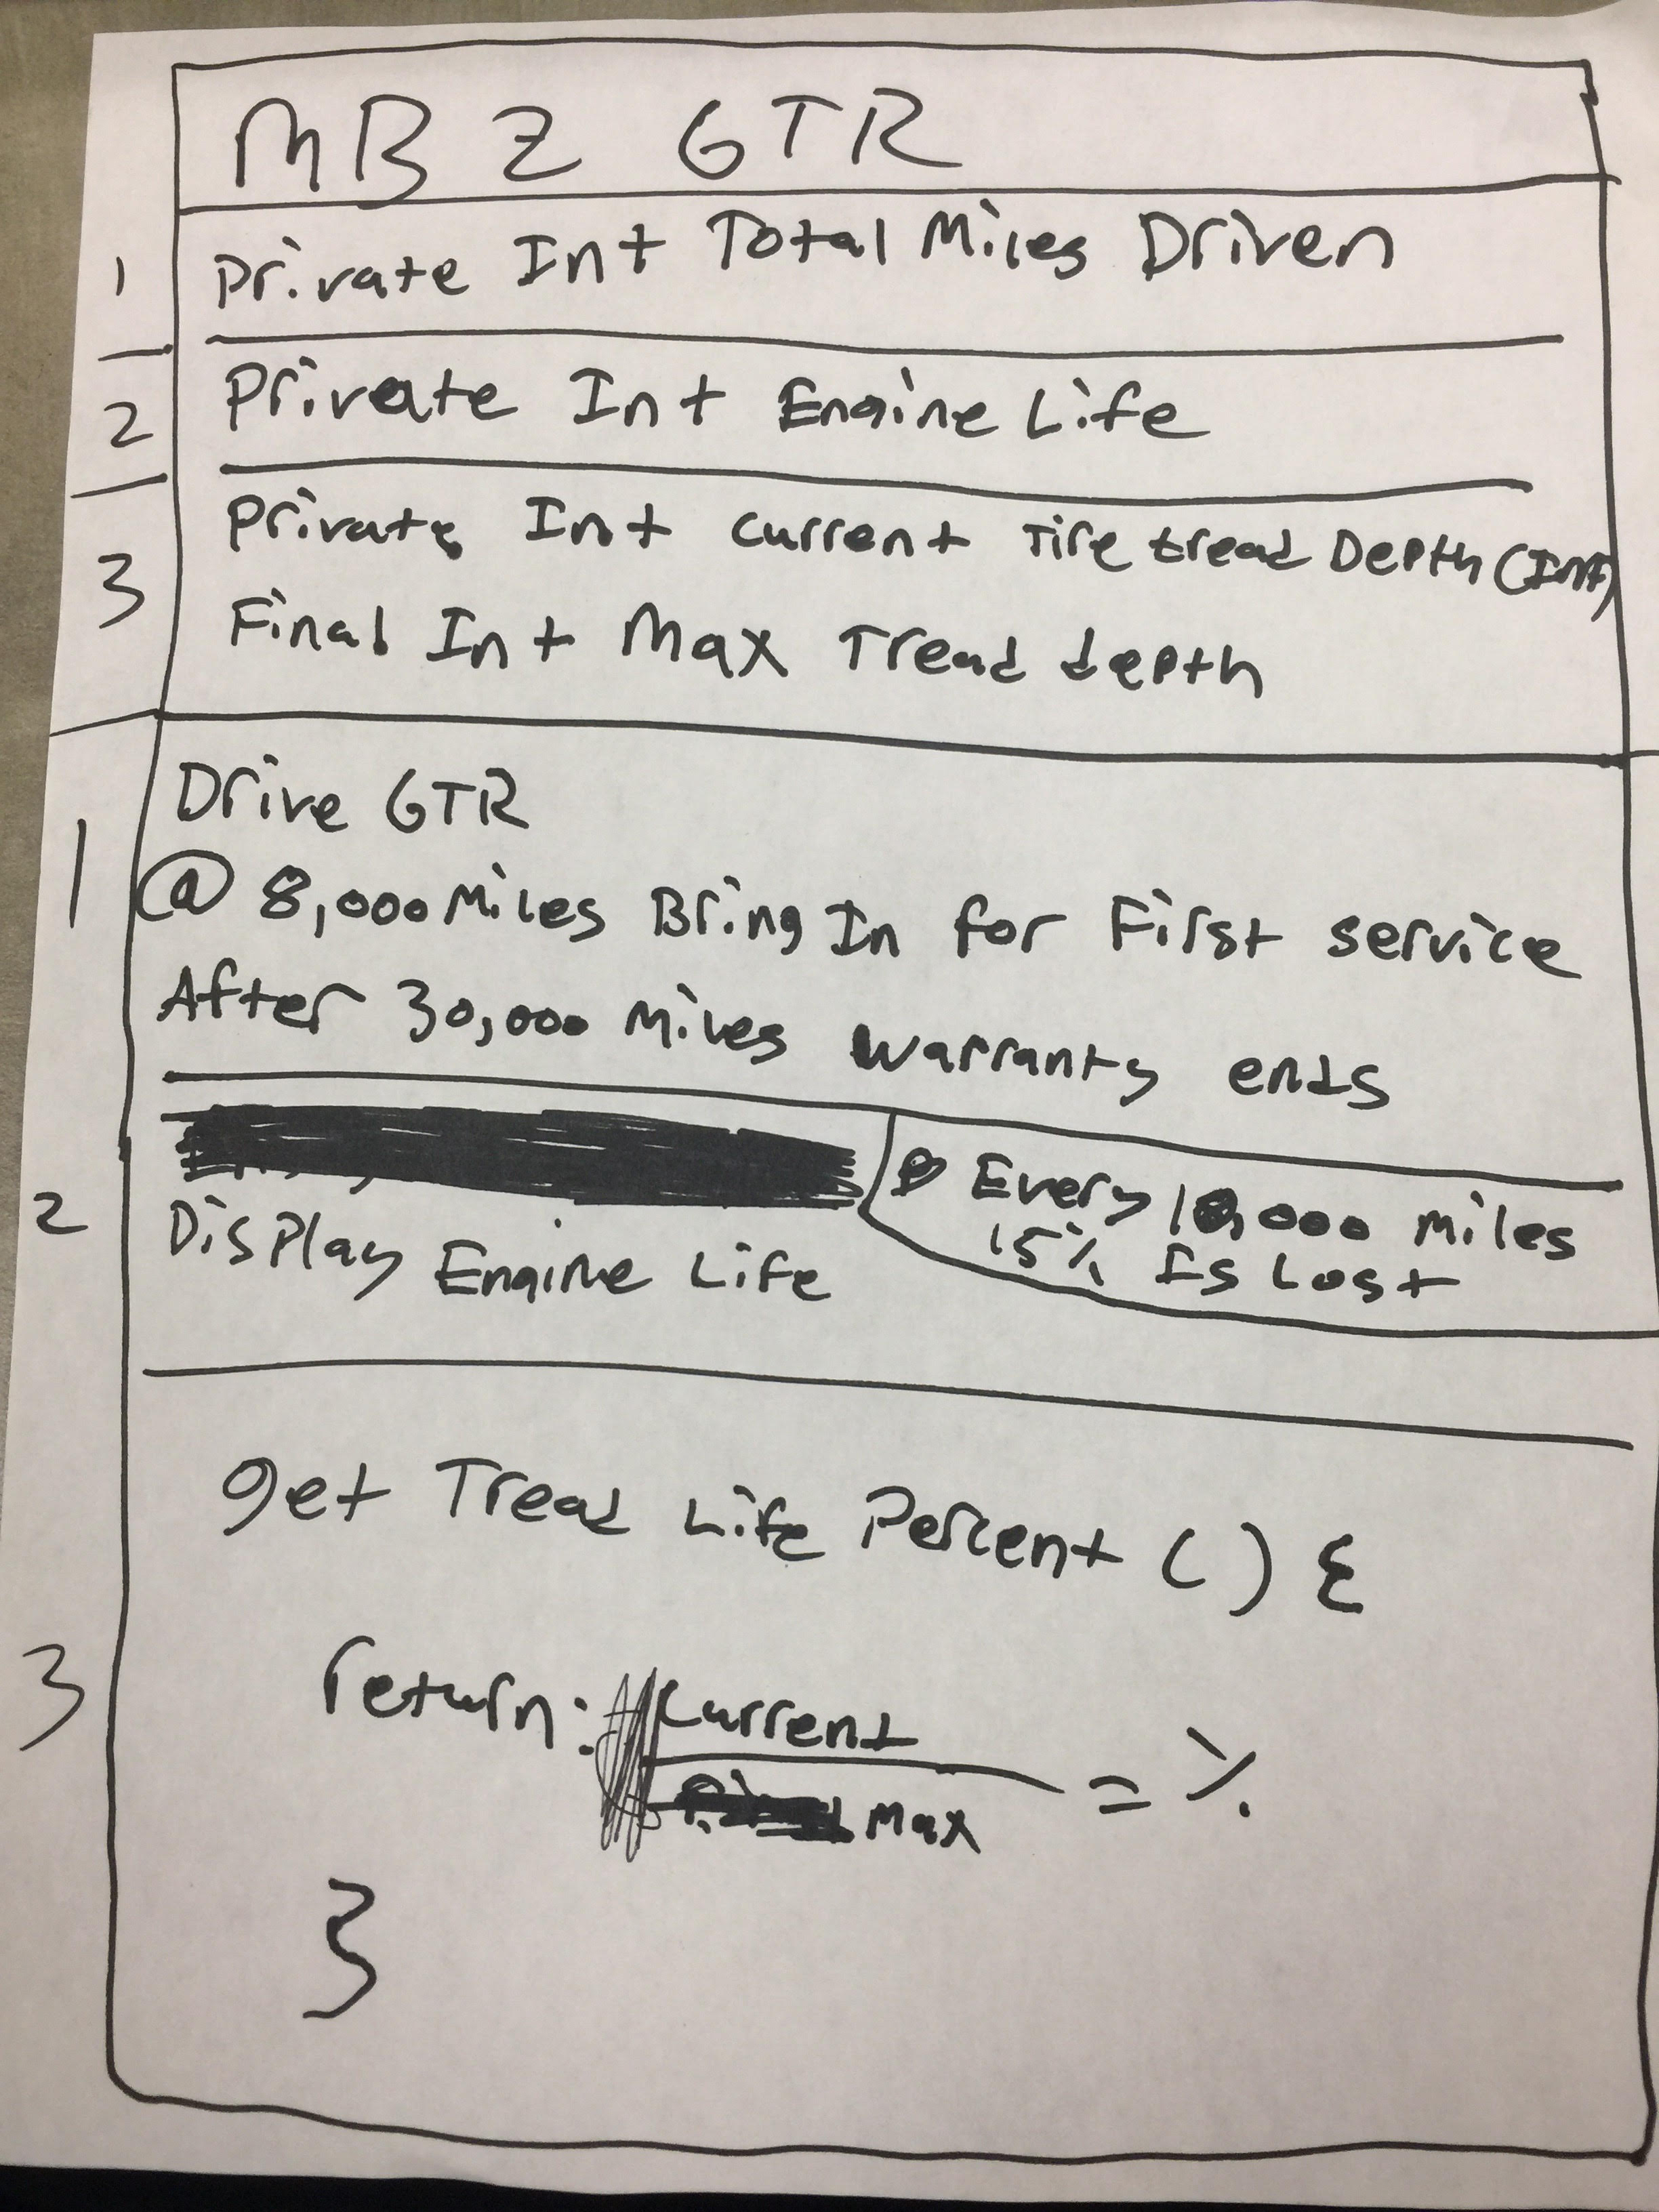 MBZ GTR
1 Private Int Total Miles Driven
2 Private Int Engine Life
3 Private Int current Tire tread Depth (Int)
Final Int Max Tread depth
Drive GTR
1 @ 8,000 Miles Bring In for First service
After 30,000 Miles warranty ends
Every 10,000 miles
15% Is Lost
2 Display Engine Life
get Tread Life Percent () {
3 return: Current
Max
= %
}